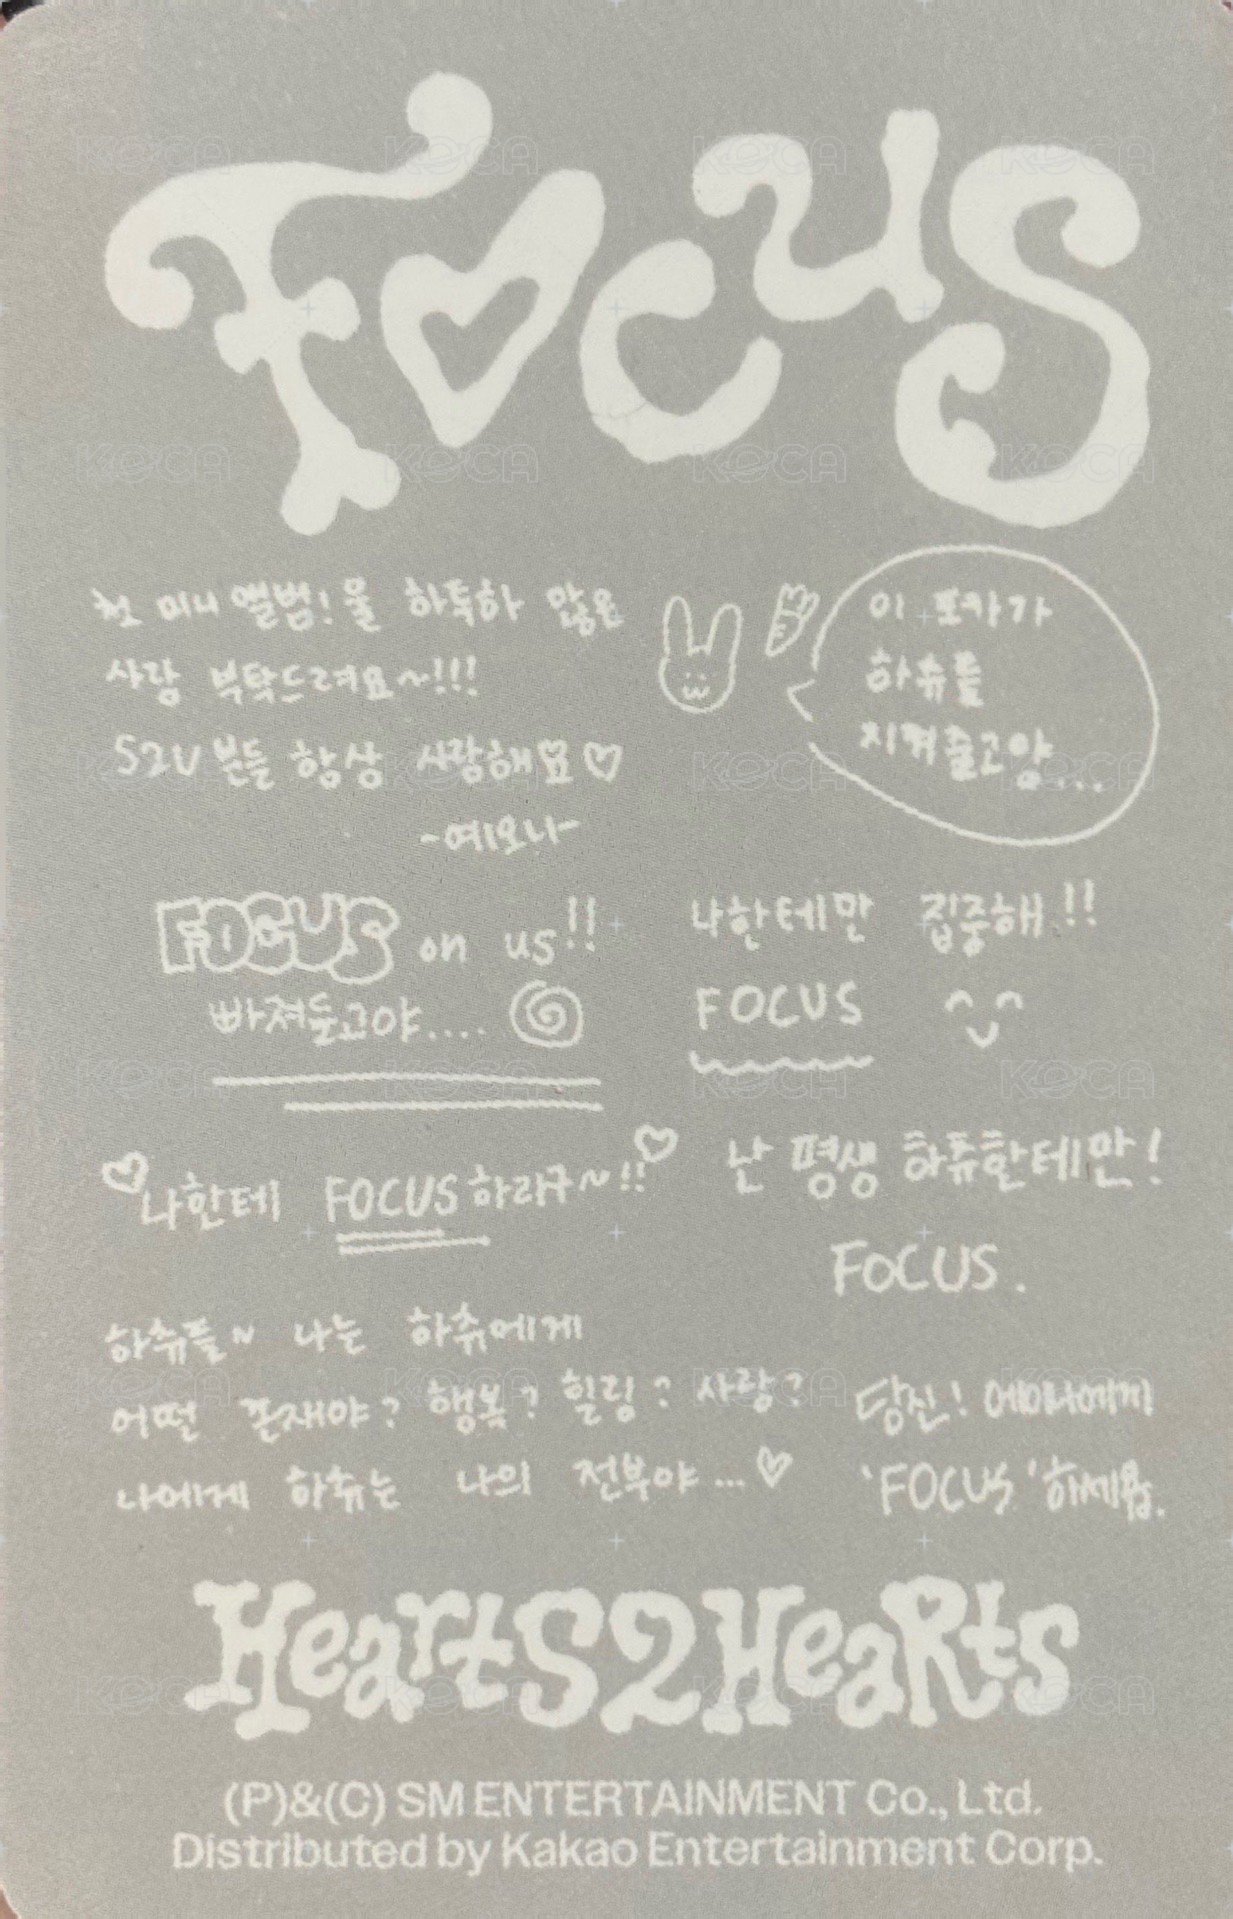 FOCUS
첫 미니 앨범! 울 하듁하 많은
사랑 부탁드려요~!!!
S2U 분들 항상 사랑해요♡
-예오니-
이 포카가
하츄들
지켜줄고양...
FOCUS on us!!
빠져들고야....
나한테만 집중해!!
FOCUS
나한테 FOCUS 하라구~!!
난 평생 하츄한테만!
FOCUS.
하츄들~ 나는 하츄에게
어떤 존재야? 행복? 힐링? 사랑?
나에게 하츄는 나의 전부야...♡
당신! 에이나에게
'FOCUS' 하세욥.
Hearts2Hearts
(P)&(C) SM ENTERTAINMENT Co., Ltd.
Distributed by Kakao Entertainment Corp.
KOCA